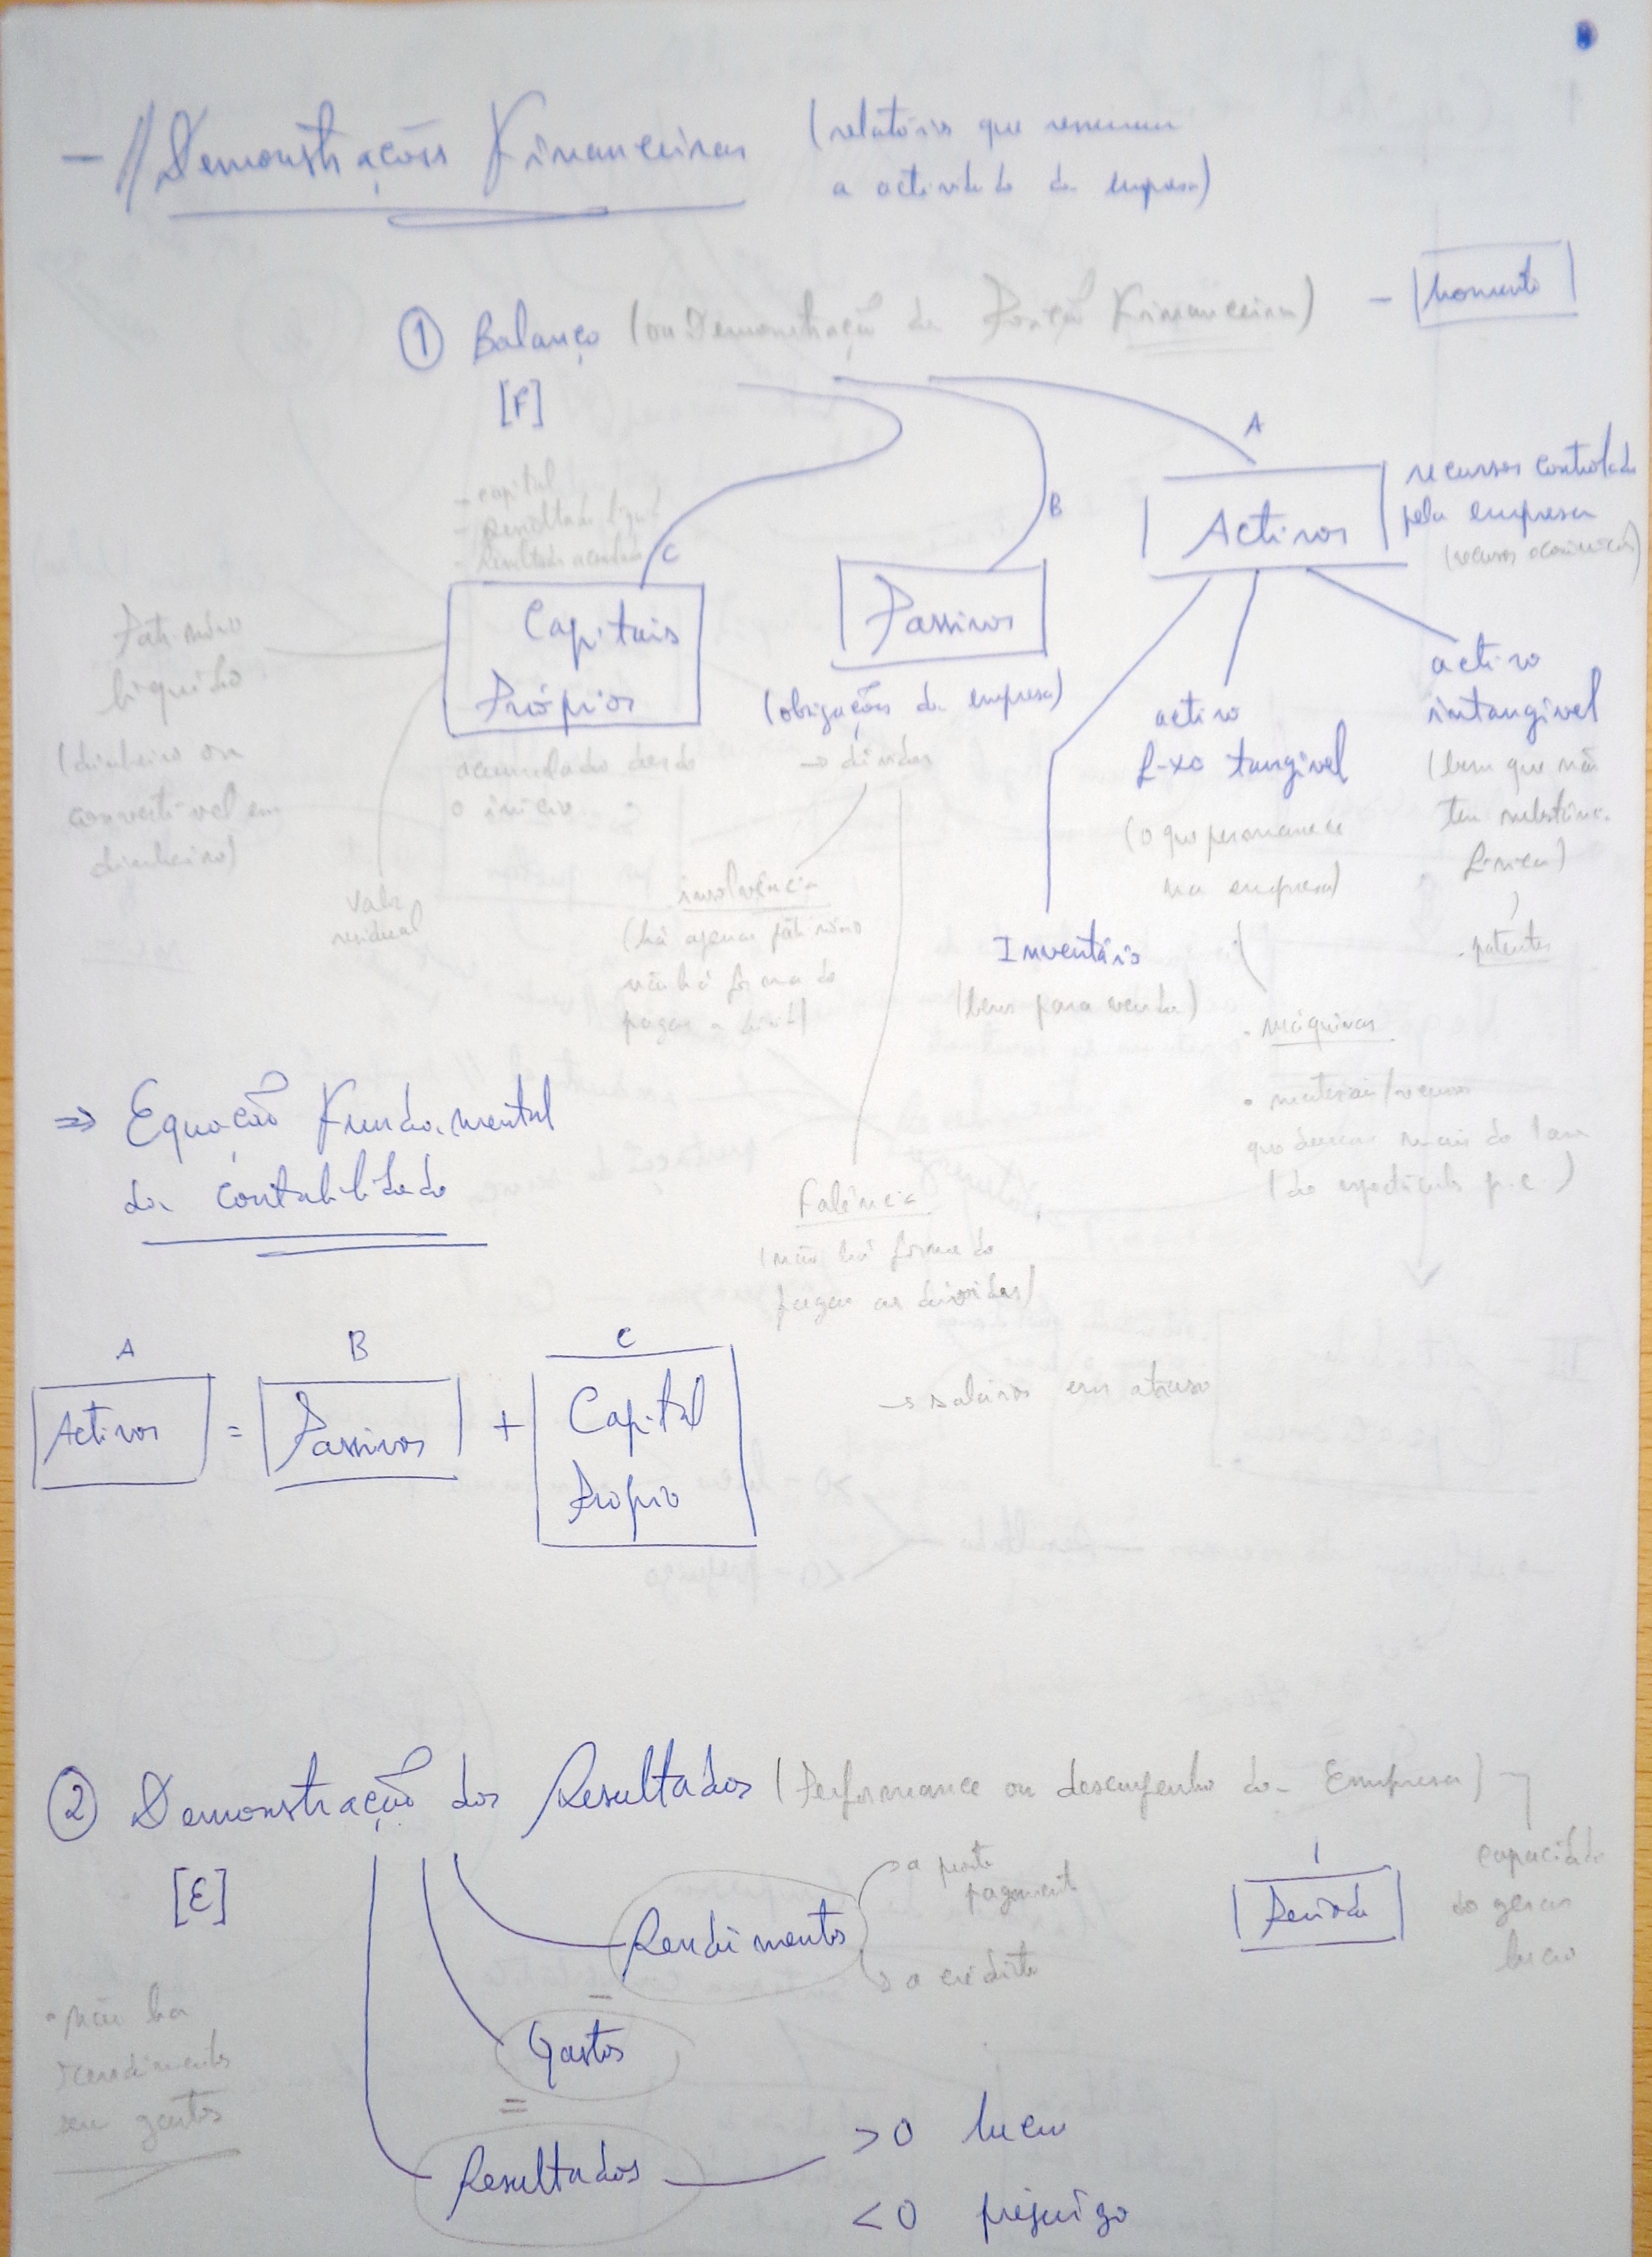 - // Demonstrações Financeiras
(relatórios que resumem
a actividade da empresa)
① Balanço (ou Demonstração da Posição Financeira) - Momento
[F]
- capital
- resultado líquid
- resultado acumulado
C
B
A
Activos
recursos controlado
pela empresa
(recursos económicos)
Capitais
Próprios
Passivos
(obrigações da empresa)
→ dívidas
Património
líquido
(dinheiro ou
convertível em
dinheiro)
acumulado desde
o início
valor
residual
insolvência
(há apenas património
não há forma de
pagar a
Falência
(não há forma de
pagar as dívidas)
→ salários em atraso
activo
fixo tangível
(o que permanece
na empresa)
• máquinas
• materiais/recursos
que duram mais de 1 ano
(do espectáculo p.e)
activo
intangível
(bem que não
tem substânc.
física)
- patentes
Inventário
(bens para venda)
⇒ Equação Fundamental
da contabilidade
A B C
Activos = Passivos + Capital
Próprio
② Demonstração dos Resultados (Performance ou desempenho da Empresa)
[E]
capacidade
de gerar
lucro
Período
Rendimentos
a pronto
pagament
a crédito
-
Gastos
=
Resultados
>0 lucro
<0 prejuízo
• não há
rendimentos
sem gastos